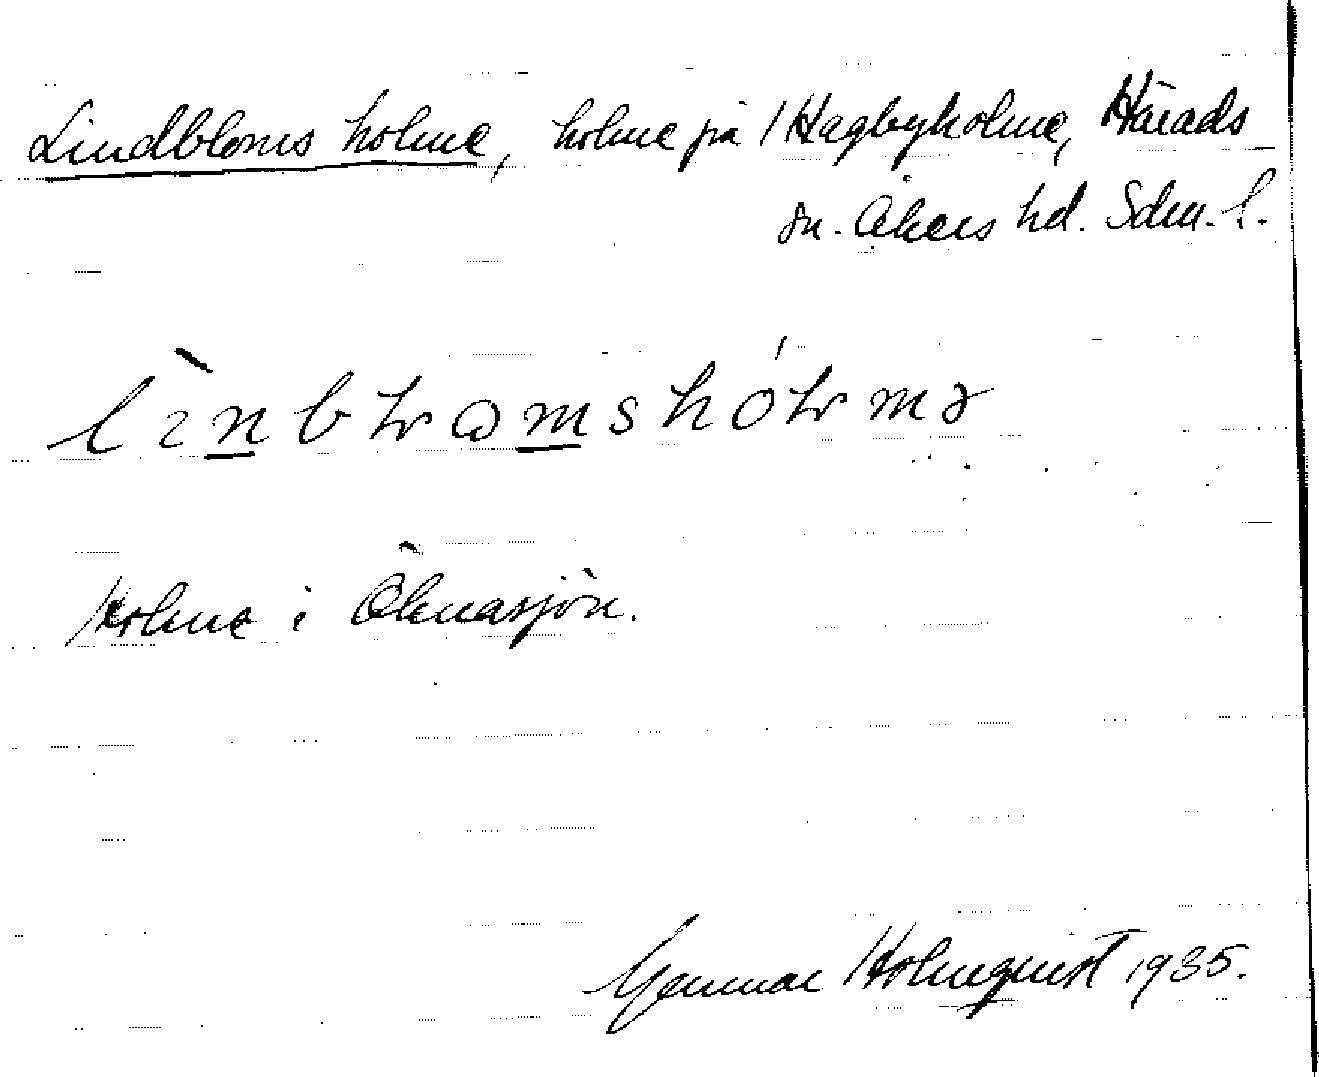 Lindbloms holme, holme på Hagbyholme, Härads
sn. Åkers hd. Sdm. l.
Holme i Öknasjön.
Gunnar Holmquist 1935.